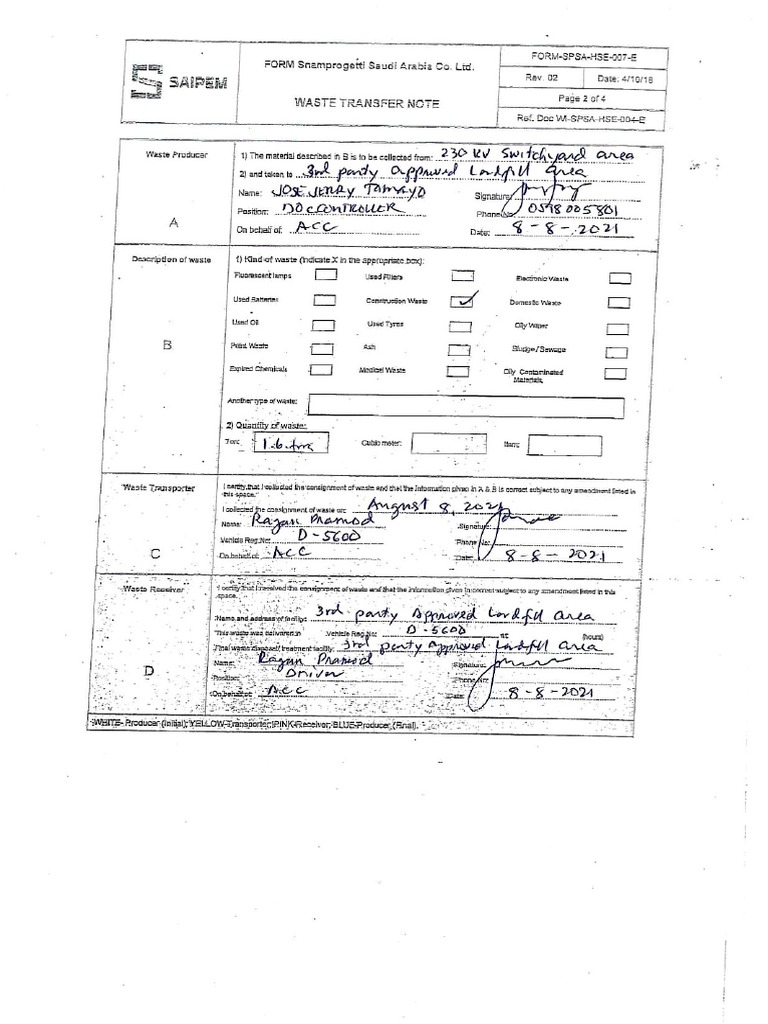 SAIPEM
FORM Snamprogetti Saudi Arabia Co. Ltd.
WASTE TRANSFER NOTE
FORM-SPSA-HSE-007-E
Rev. 02 Date: 4/10/18
Page 2 of 4
Ref. Doc WI-SPSA-HSE-004-E
Waste Producer
A
1) The material described in B is to be collected from: 230 KV Switchyard area
2) and taken to 3rd party Approved Landfill area
Name: JOSE JERRY TAMAYO Signature:
Position: DOC CONTROLLER Phone No: 0598005801
On behalf of: ACC Date: 8-8-2021
Description of waste
B
1) Kind of waste (indicate X in the appropriate box):
Fluorescent lamps Used Filters Electronic Waste
Used Batteries Construction Waste ✓ Domestic Waste
Used Oil Used Tyres Oily Water
Paint Waste Ash Sludge / Sewage
Expired Chemicals Medical Waste Oily Contaminated Materials
Another type of waste:
2) Quantity of waste:
Ton: 1.6 Cubic meter: Item:
Waste Transporter
C
I certify that I collected the consignment of waste and that the information given in A & B is correct subject to any amendment listed in
this space."
I collected the consignment of waste on: August 8, 2021
Name: Rajan Pramod Signature:
Vehicle Reg.No: D-5600 Phone No:
On behalf of: ACC Date: 8-8-2021
Waste Receiver
D
"I certify that I received the consignment of waste and that the information given in correct subject to any amendment listed in this
space.
Name and address of facility: 3rd party Approved Landfill area
This waste was delivered in Vehicle Reg No: D-5600 at: (hours)
Final waste disposal/ treatment facility: 3rd party Approved Landfill area
Name: Rajan Pramod Signature:
Position: Driver Phone No:
On behalf of: ACC Date: 8-8-2021
WHITE- Producer (Initial); YELLOW-Transporter; PINK-Receiver; BLUE-Producer (Final).